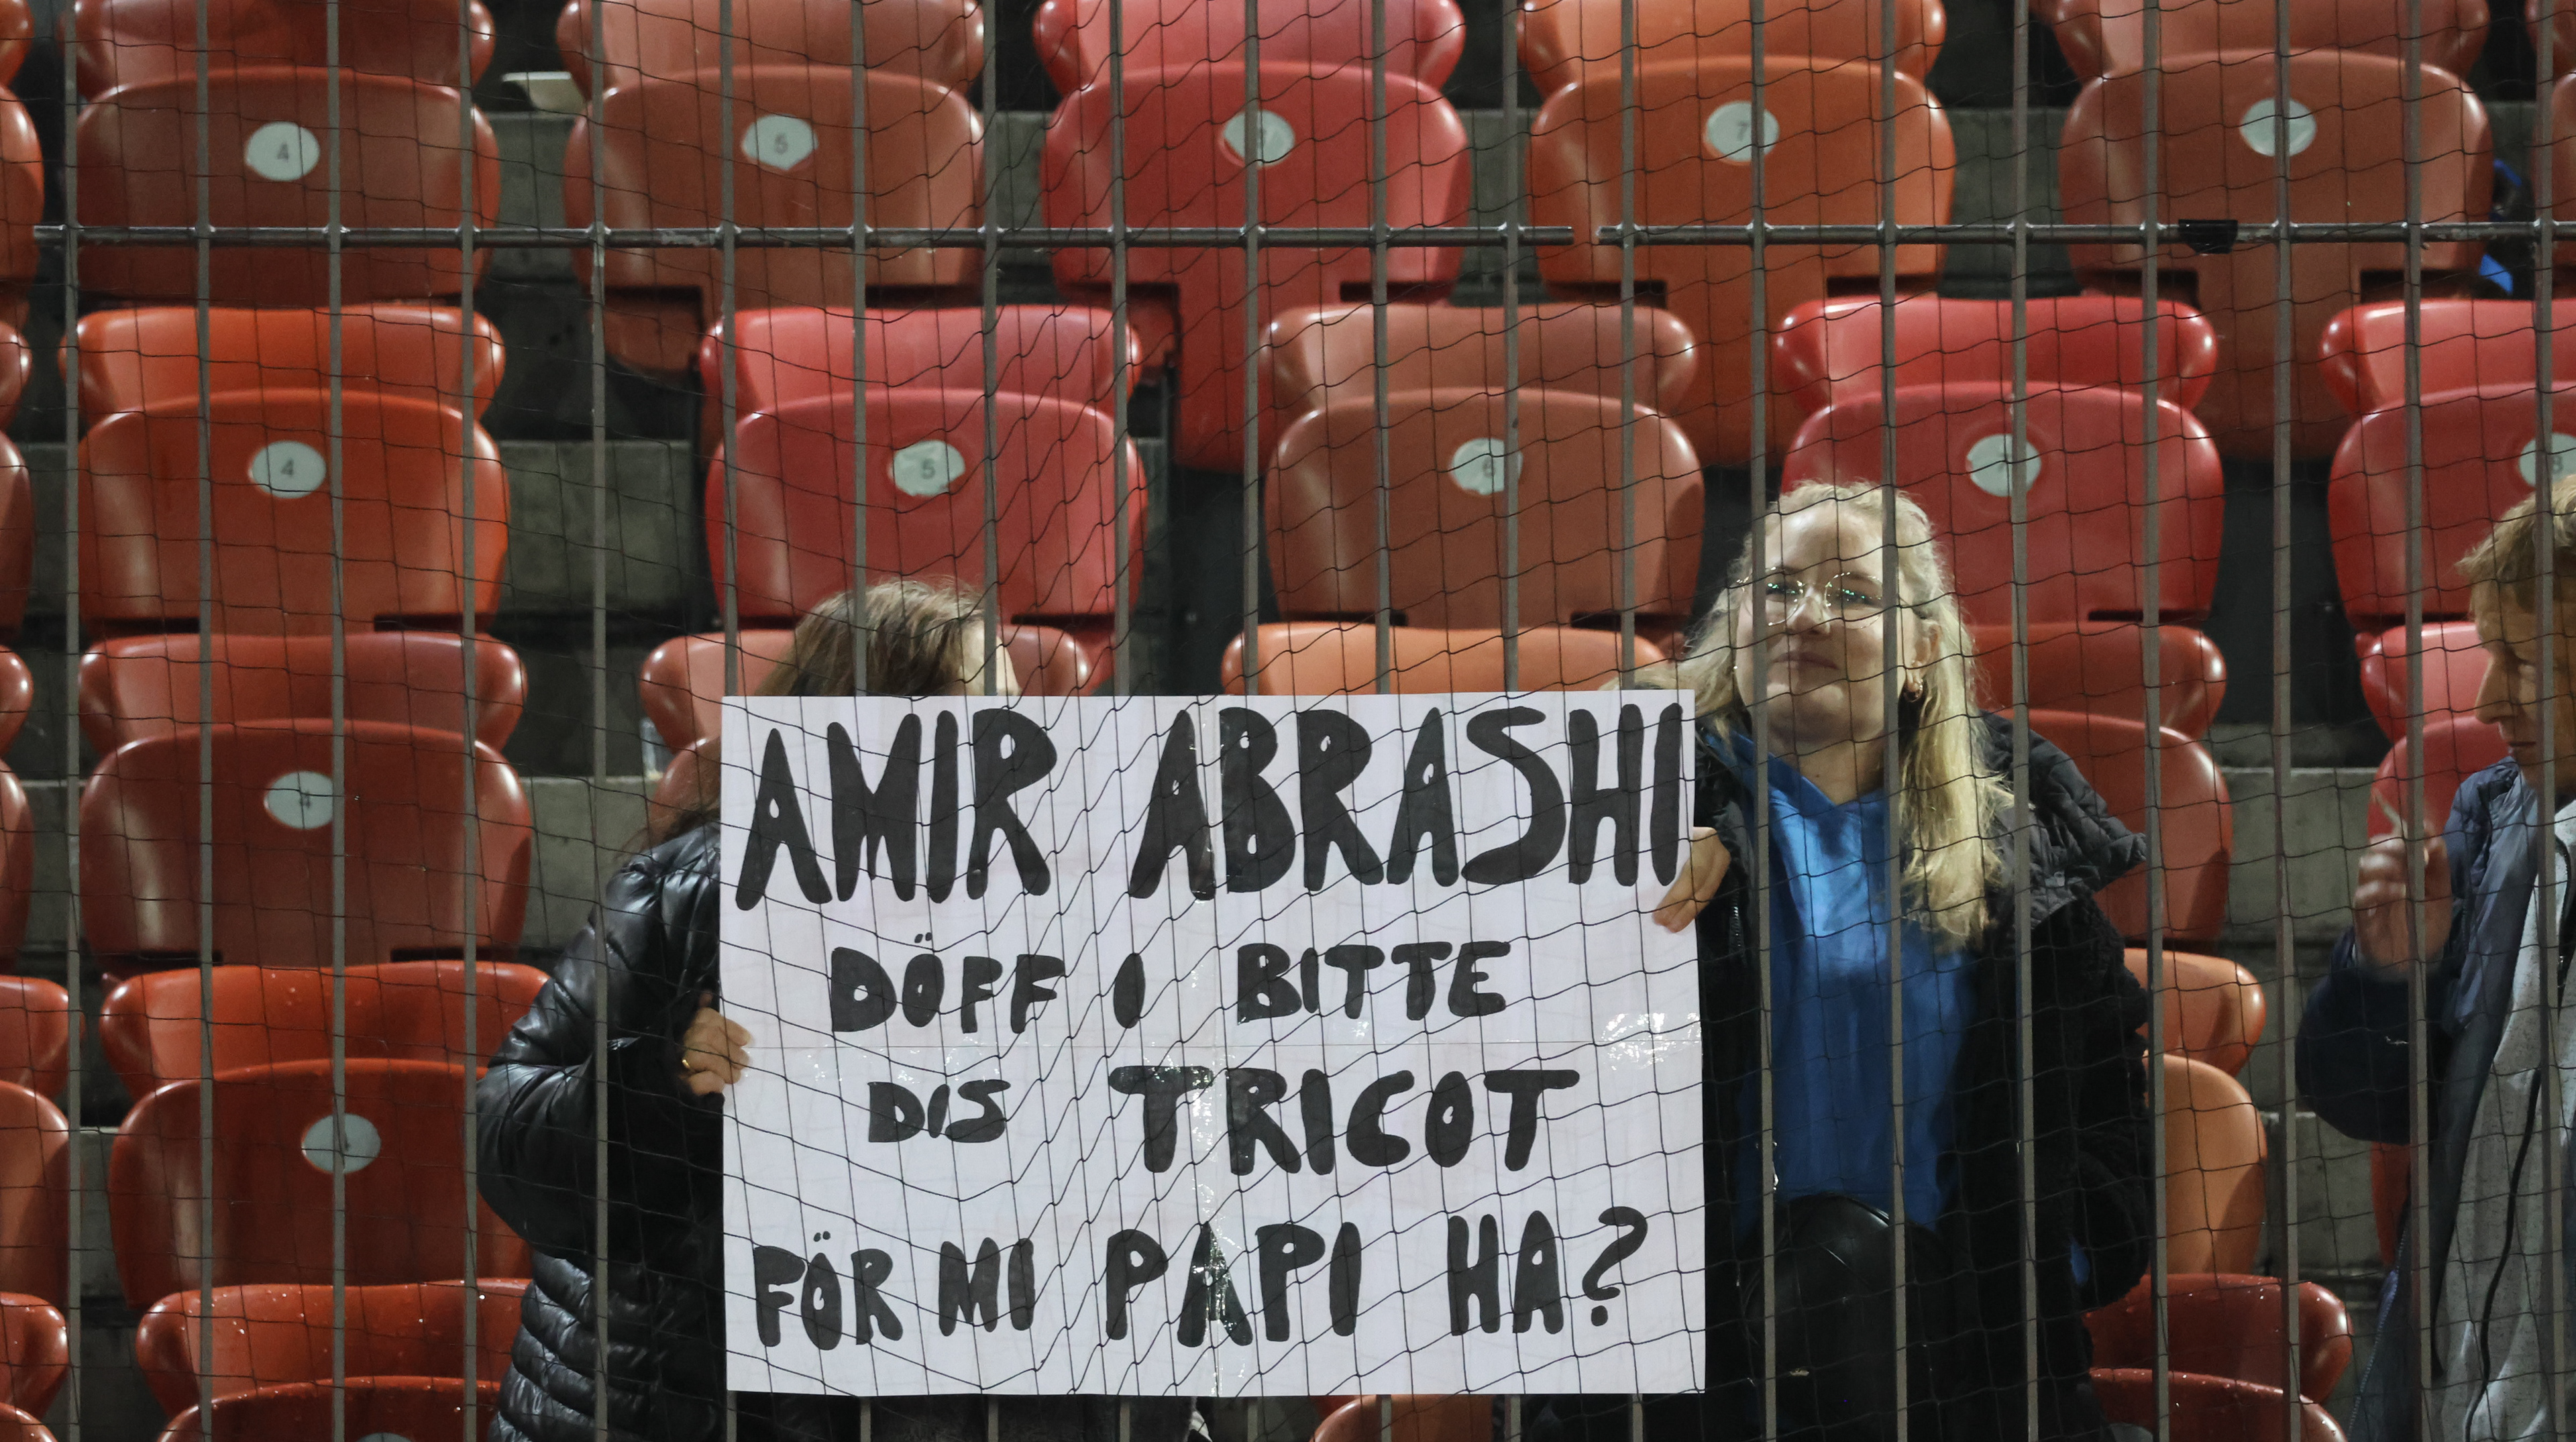 4
5
7
4
5
6
4
AMIR ABRASHI
DÖFF I BITTE
DIS TRICOT
FÖR MI PAPI HA?